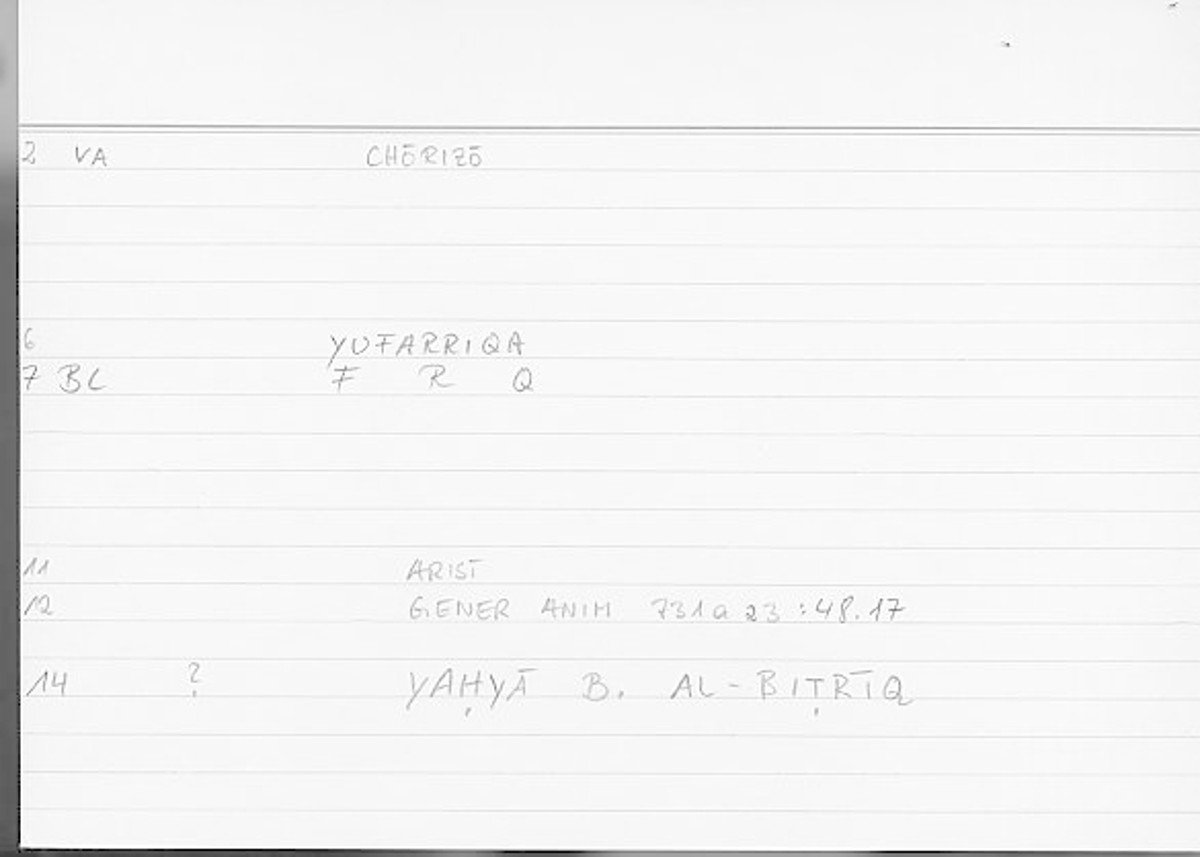 2 VA CHŌRIZŌ
6 YUFARRIQA
7 BL F R Q
11 ARIST
12 GENER ANIM 731a23:48.17
14 ? YAḤYĀ B. AL-BIṬRĪQ